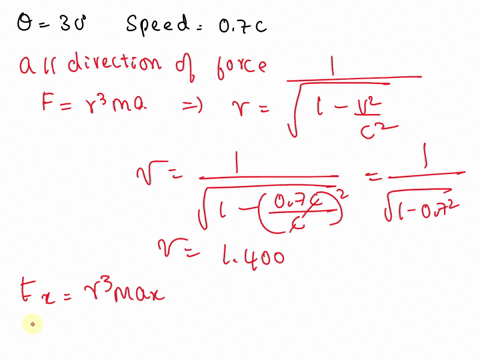 θ = 30° Speed = 0.7c
a || direction of force
F = r³ma ⇒ r = 1/√(1 - v²/c²)
r = 1/√(1 - (0.7c/c)²) = 1/√(1-0.7²)
r = 1.400
Fx = r³max